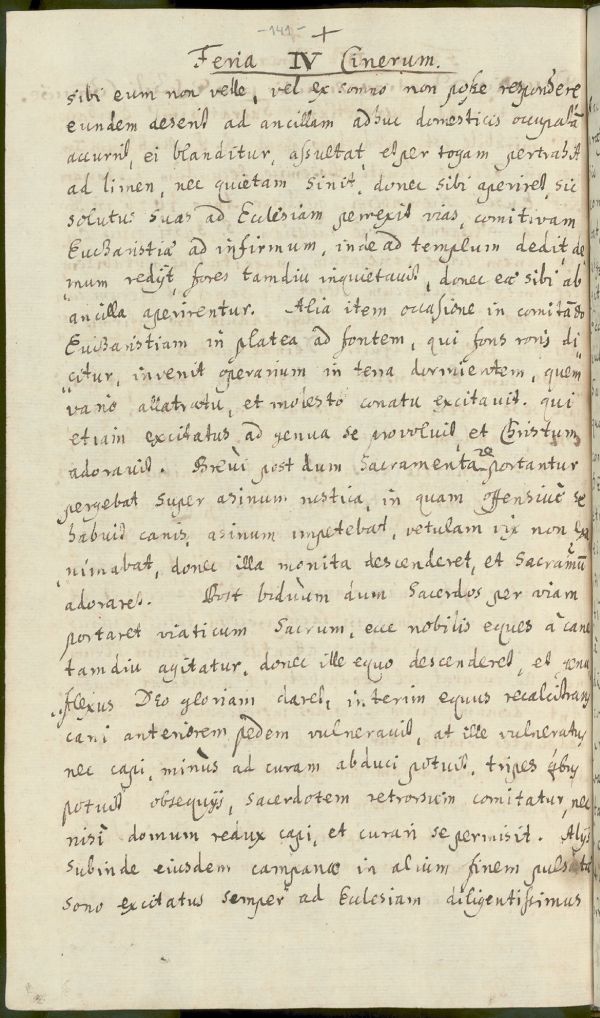 -141- +
Feria IV Cinerum.
sibi eum non velle, vel ex somno non posse respondere
eundem deserit ad ancillam adhuc domesticis occupatã
accurrit, ei blanditur, assultat, et per togam pertrahit
ad limen, nec quietam sinit, donec sibi aperiret, sic
solutus suas ad Eclesiam perrexit vias, comitivam
Eucharistiæ ad infirmum, inde ad templum dedit, de
mum redijt, fores tamdiu inquietavit, donec eæ sibi ab
ancilla aperirentur. Alia item occasione in comitãdo
Eucharistiam in platea ad fontem, qui fons roris di
citur, invenit operarium in terra dormientem, quem
vario allatratu, et molesto conatu excitavit. qui
etiam excitatus ad genua se provoluit, et Christum
adoravit. Brevi post dum Sacramenta re portantur
pergebat super asinum rustica, in quam offensive se
habuit canis, asinum impetebat, vetulam vix non exa
nimabat, donec illa monita descenderet, et Sacramtũ
adoraret. Post biduum dum Sacerdos per viam
portaret viaticum Sacrum, ecce nobilis eques à cane
tamdiu agitatur, donec ille equo descenderet, et genu
flexus Deo gloriam daret, interim equus recalcitrans
cani anteriorem pedem vulneravit, at ille vulneratus
nec capi, minùs ad curam abduci potuit, tripes qbus
potuit obsequijs, sacerdotem retrorsum comitatur, nec
nisi domum redux capi, et curari se permisit. Alijs
subinde eiusdem campanæ in alium finem pulsatæ
sono excitatus semper ad Eclesiam diligentissimus